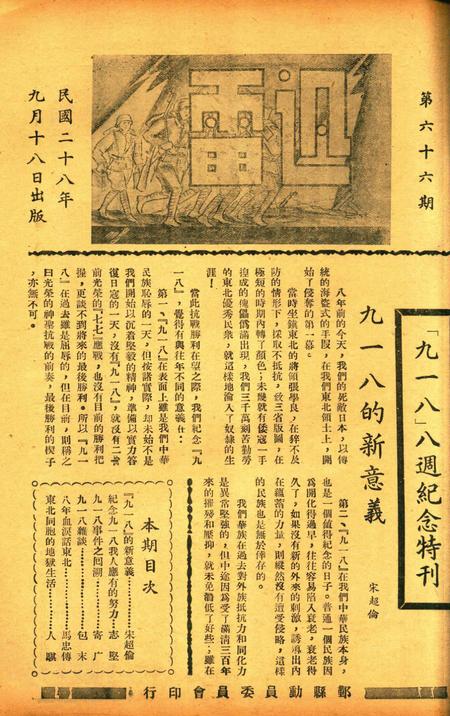 第六十六期
迅雷
民國二十八年
九月十八日出版
「九一八」八週紀念特刊
九一八的新意義
宋超倫
八年前的今天,我們的死敵日本,以傳
統的海盜式的手段,在我們東北領土上,開
始了侵奪的第一幕。
當時坐鎮東北的將領張學良,在猝不及
防的情形下,採取不抵抗,致三省版圖,在
極短的時期內轉了顏色;未幾就有倭寇一手
揑成的傀儡僞滿出現,我們三千萬刻苦勤勞
的東北優秀民衆,就這樣地淪入了奴隸的生
涯!
當此抗戰勝利在望之際,我們紀念『九
一八』,覺得有與往年不同的意義在:
第一、『九一八』在表面上雖是我們中華
民族恥辱的一天,但按諸實際,却未始不是
我們開始以沉着堅毅的精神,準備以實力答
復日寇的一天,沒有『九一八』,就沒有二年
前光榮的『七七』應戰,也沒有目前的勝利把
握,更談不到將來的最後勝利。所以『九一
八』在過去雖是屈辱的,但在目前,則稱之
曰光榮的神聖抗戰的前奏,最後勝利的楔子
,亦無不可。
第二、『九一八』在我們中華民族本身,
也是一個值得紀念的日子。普通一個民族因
爲開化得過早,往往容易陷入衰老,衰老得
久了,如果沒有新的外來的刺激,誘導出內
在蘊蓄的力量,則縱然沒有遭受侵略,這樣
的民族也是無於倖存的。
我們華族在過去對外族抵抗力和同化力
是異常堅強的,但中途因爲受了滿清三百年
來的摧殘和壓抑,就未免稍低了好些;雖在
本期目次
『九一八』的新意義……宋超倫
紀念九一八我人應有的努力…志堅
九一八事件之回溯……寄广
九一八雜談……包末
八年血淚話東北……馬忠傳
東北同胞的地獄生活……人騏
鄞縣動員委員會印行